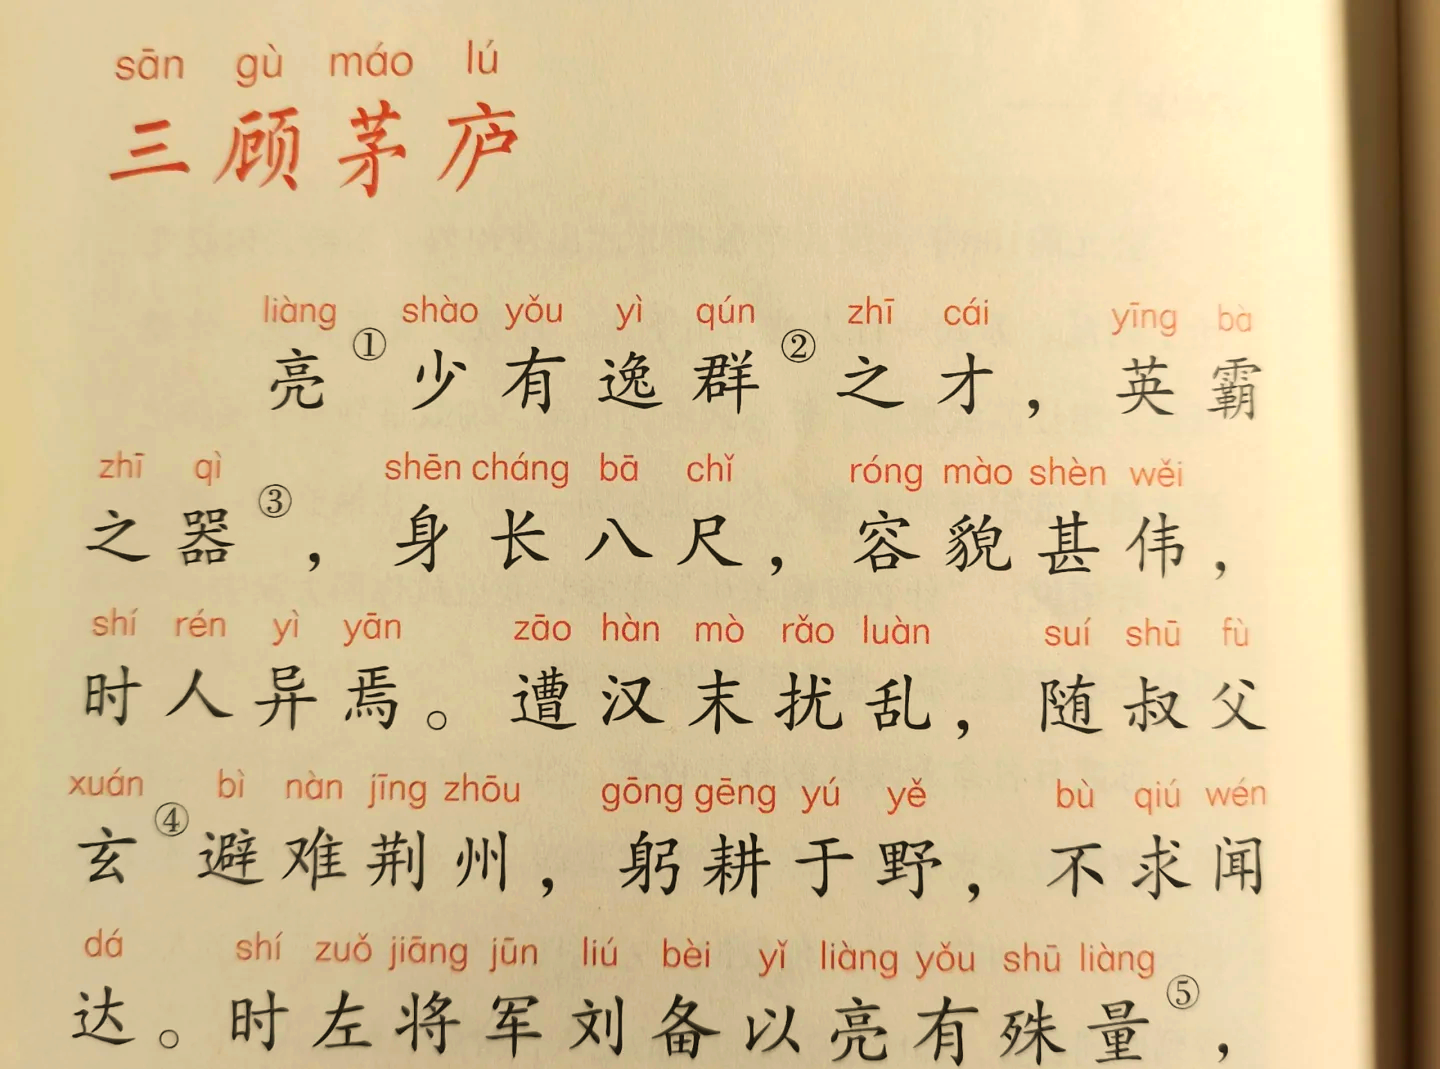 sān gù máo lú
三顾茅庐
liàng shào yǒu yì qún zhī cái yīng bà
亮①少有逸群②之才，英霸
zhī qì shēn cháng bā chǐ róng mào shèn wěi
之器③，身长八尺，容貌甚伟，
shí rén yì yān zāo hàn mò rǎo luàn suí shū fù
时人异焉。遭汉末扰乱，随叔父
xuán bì nàn jīng zhōu gōng gēng yú yě bù qiú wén
玄④避难荆州，躬耕于野，不求闻
dá shí zuǒ jiāng jūn liú bèi yǐ liàng yǒu shū liàng
达。时左将军刘备以亮有殊量⑤，